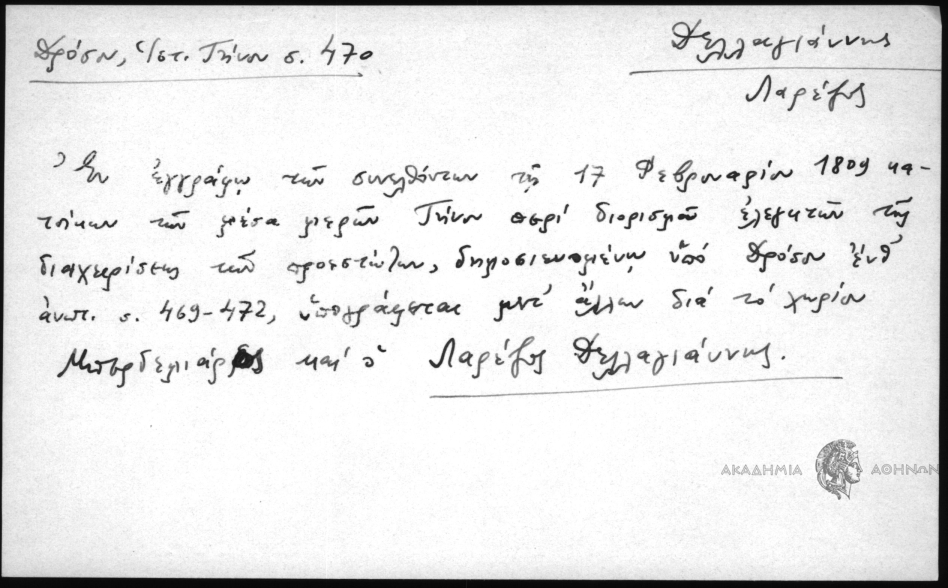 Δρόσου, Ἱστ. Τήνου σ. 470
Δελλαγιάννης
Λαρέζος
Ἐν ἐγγράφῳ τῶν συνελθόντων τῇ 17 Φεβρουαρίου 1809 κα-
τοίκων τῶν μέσα μερῶν Τήνου περί διορισμοῦ ἐλεγκτῶν τῆς
διαχειρίσεως τῶν προεστώτων, δημοσιευομένῳ ὑπό Δρόσου ἔνθ'
ἀνωτ. σ. 469-472, ὑπογράφεται μετ' ἄλλων διά τό χωρίον
καί ὁ Λαρέζος Δελλαγιάννης.
ΑΚΑΔΗΜΙΑ ΑΘΗΝΩΝ